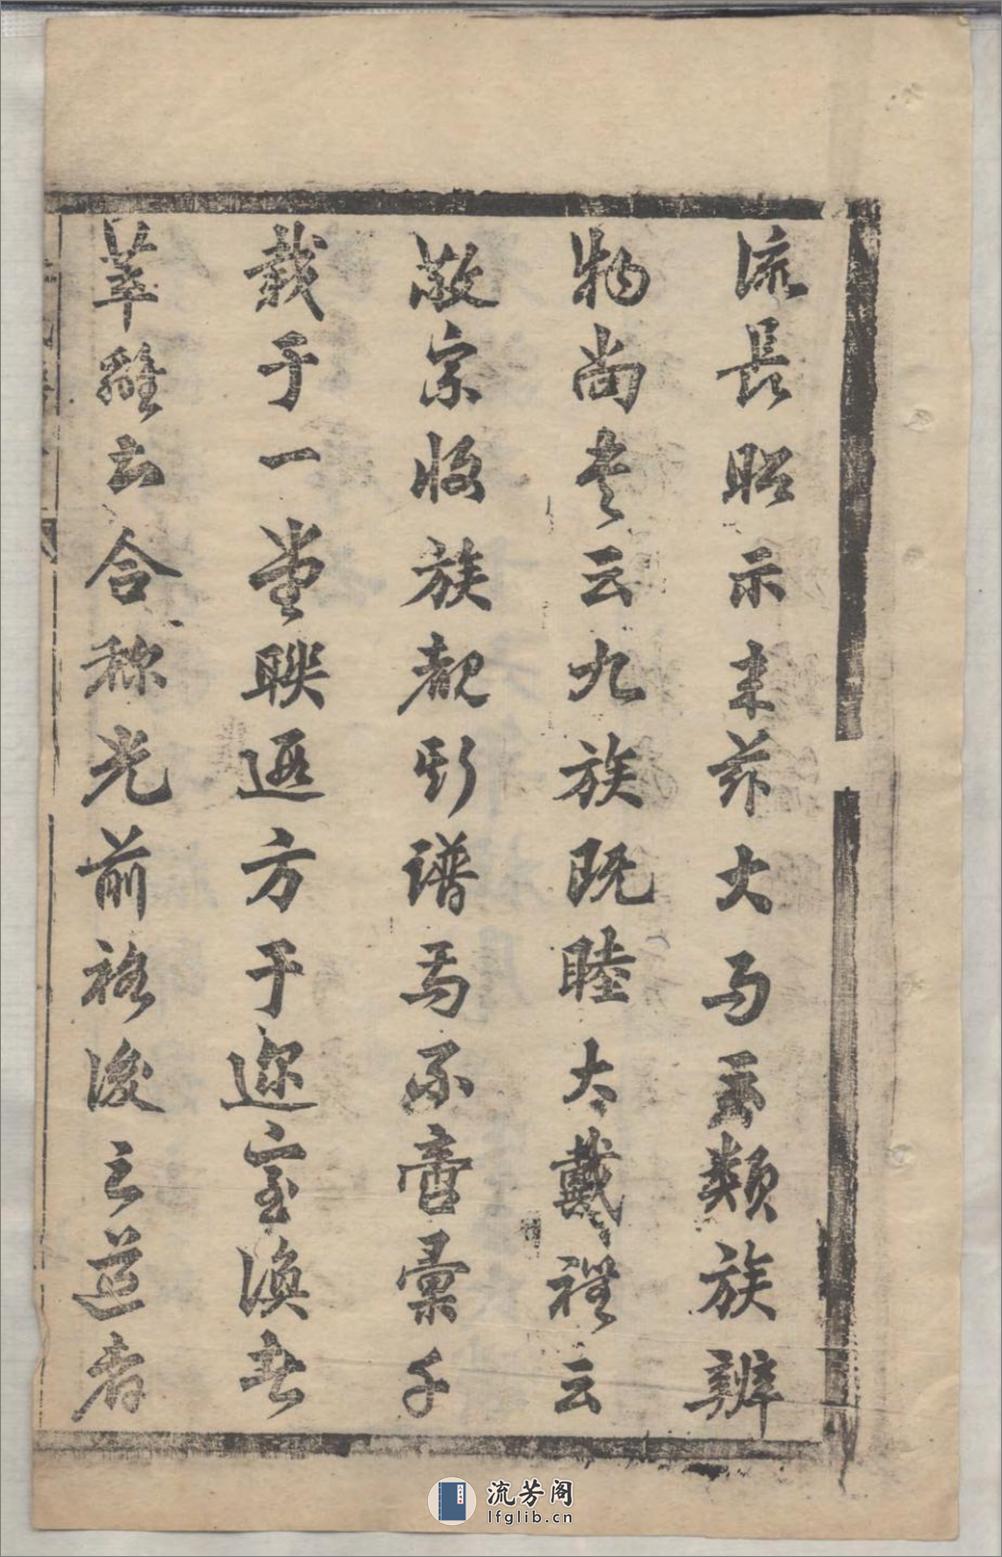 流長昭示来茲大易云類族辨
物尚書云九族既睦大戴禮云
敬宗收族觀斯譜焉不啻彙千
載于一堂聯遐方于邇室渙者
萃離者合称光前裕後之道者
流芳阁
lfglib.cn